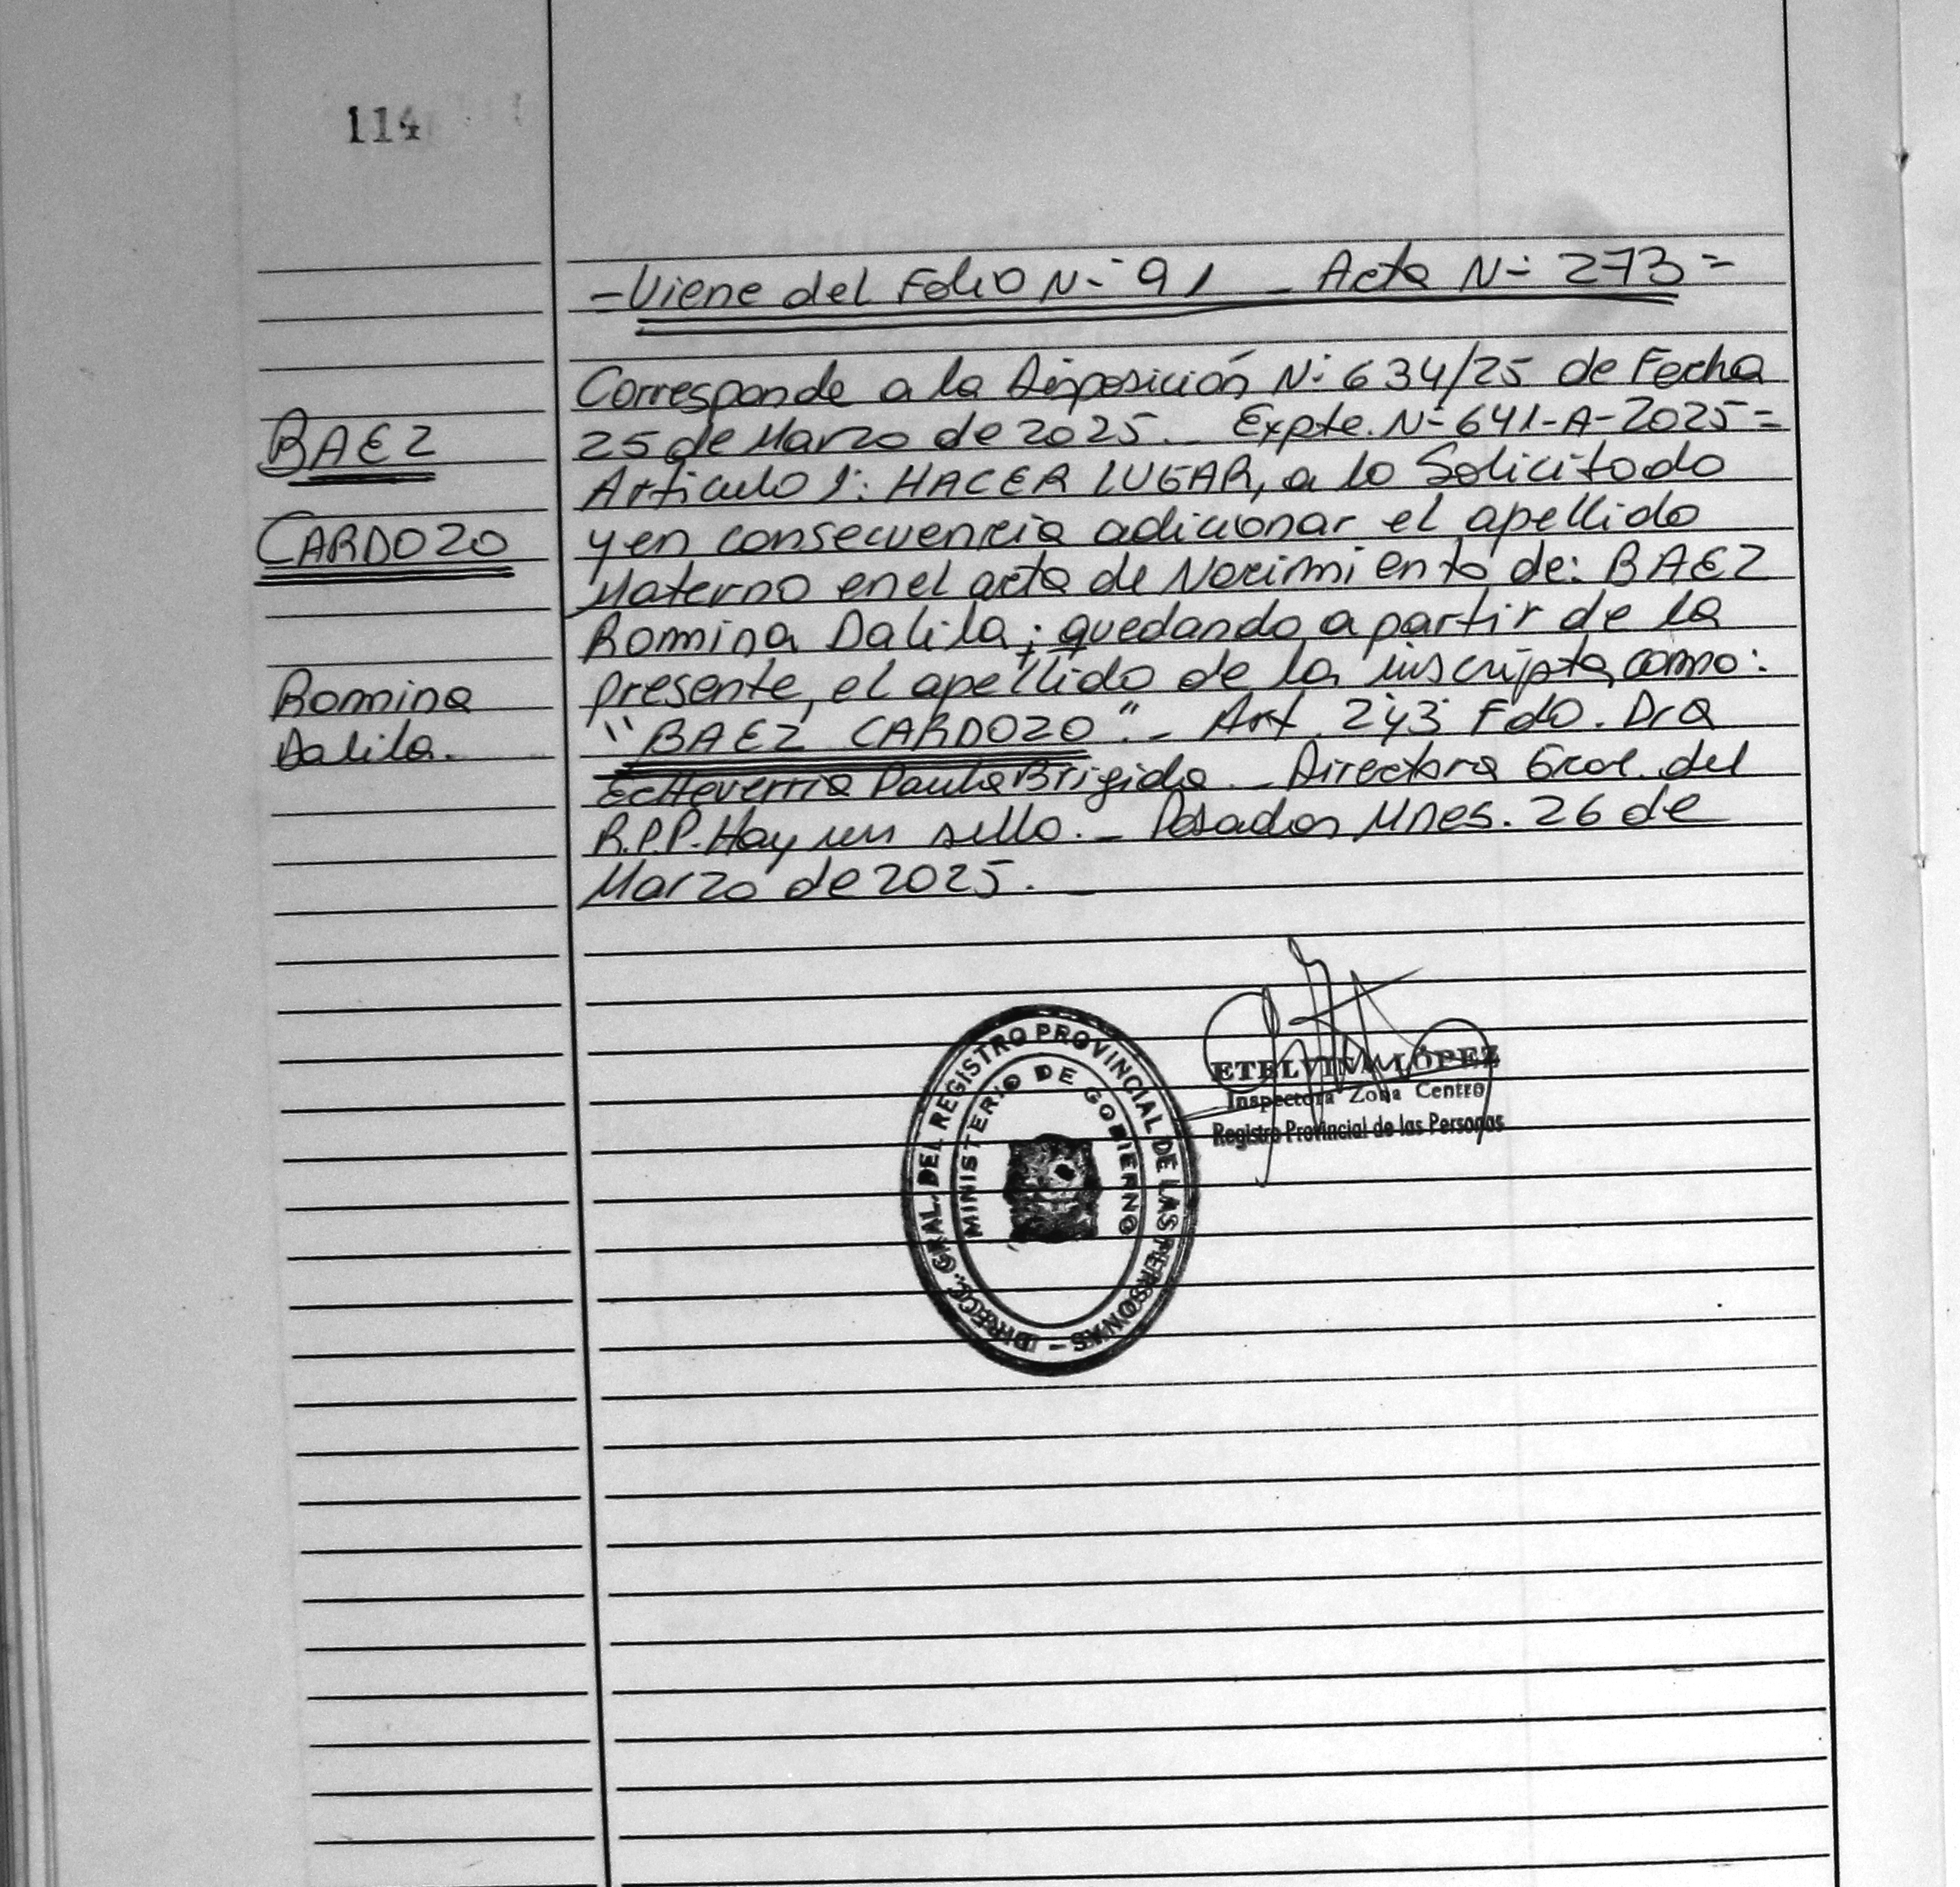 114
-Viene del Folio N-° 91 _ Acta N-° 273=
Corresponde a la Disposición N-° 634/25 de Fecha
25 de Marzo de 2025._ Expte. N-° 641-A-2025=
Articulo 1°: HACER LUGAR, a lo Solicitado
y en consecuencia adicionar el apellido
Materno en el acta de Nacimiento de: BAEZ
Romina Dalila; quedando a partir de la
presente, el apellido de la inscripta, como:
"BAEZ CARDOZO"._ Art. 2y3 Fdo. Dra
Echeverria Paula Brigida _ Directora Gral. del
R.P.P. Hay un sello._ Posadas Mnes. 26 de
Marzo de 2025._
BAEZ
CARDOZO
Romina
Dalila.
DIRECC. GRAL. DEL REGISTRO PROVINCIAL DE LAS PERSONAS -
MINISTERIO DE GOBIERNO
ETELVINA LÓPEZ
Inspectora Zona Centro
Registro Provincial de las Personas